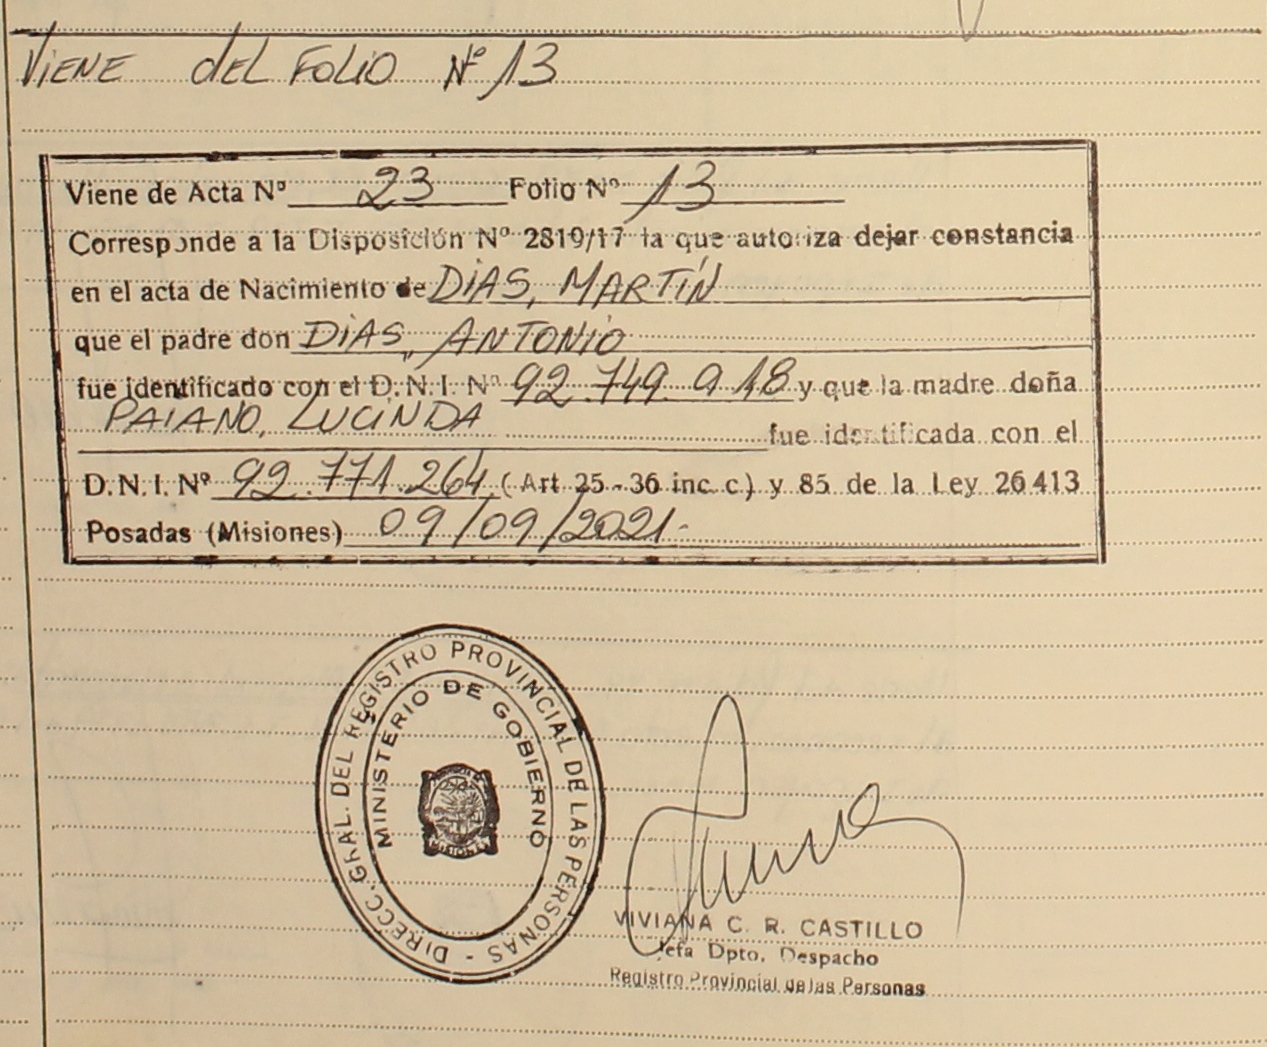 ViENE dEL FOLiO Nº 13
Viene de Acta Nº 23 Folio Nº 13
Corresponde a la Disposición Nº 2819/17 la que autoriza dejar constancia
en el acta de Nacimiento de DiAS, MARTÍN
que el padre don DiAS, ANTONiO
fue identificado con el D.N.I. Nº 92.749.918 y que la madre doña
PAIANO, LUCINDA fue identificada con el
D.N.I. Nº 92.771.264 (Art 25-36 inc c) y 85 de la Ley 26413
Posadas (Misiones) 09/09/2021.-
DIRECC. GRAL. DEL REGISTRO PROVINCIAL DE LAS PERSONAS -
MINISTERIO DE GOBIERNO
MISIONES
VIVIANA C. R. CASTILLO
Jefa Dpto. Despacho
Registro Provincial de las Personas